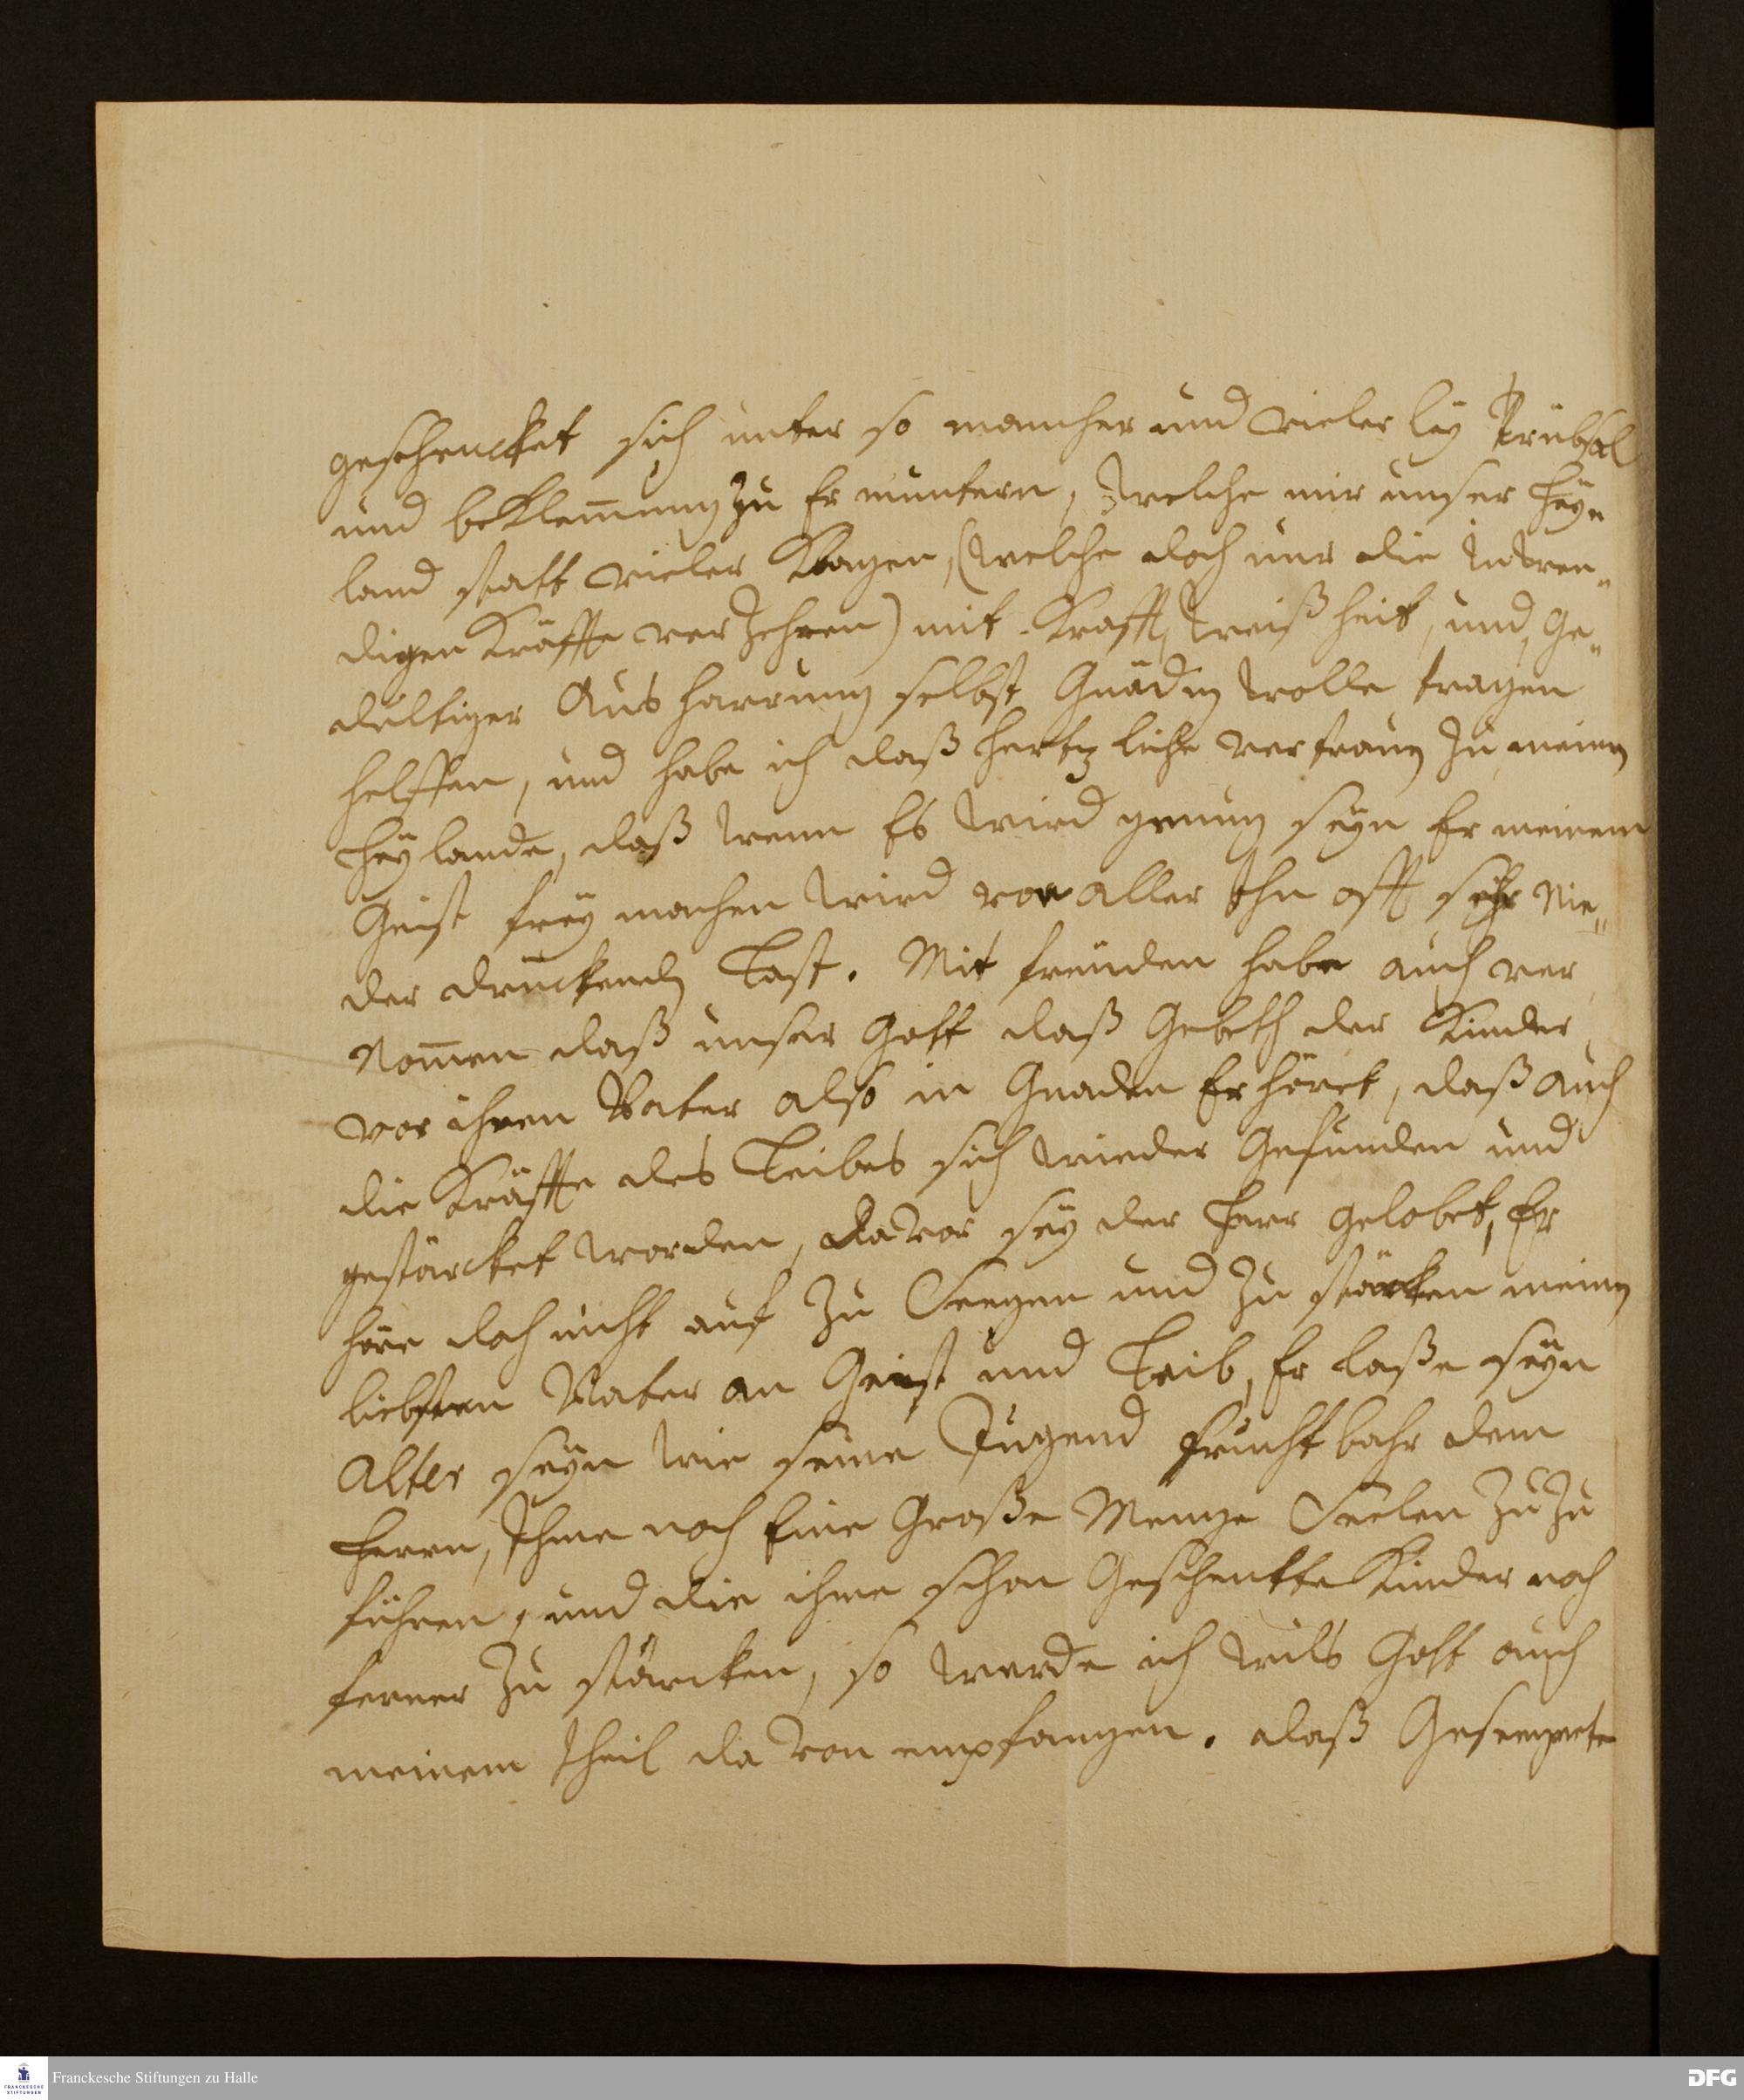 geschencket sich unter so mancher und vieler leÿ Trübsal
und beklem̅ung zu Er muntern, welche mir unser Heÿ„
land statt vieler Klagen, (welche doch nur die Inwen„
digen Kräffte ver Zehren) mit Krafft, Weißheit, und, Ge„
dultiger Aus harrung selbst Gnädig wolle tragen
helffen, und habe ich daß hertzliche vertraun zu meinen
Heÿlande, daß wenn Es wird genung seÿn Er meinem
Geist freÿ machen wird von aller Ihn offt sehr Nie„
der drückenden Last. Mit freuden habe auch ver
Nom̅en daß unser Gott daß Gebeth der Kinder
vor ihren Vater also in Gnaden Erhöret, daß auch
die Kräffte des Leibes sich wieder Gefunden und
gestärcket worden, davor seÿ der Herr gelobet, Er
höre doch nicht auf zu Seegen und zu stärcken meinen
liebsten Vater an Geist und Leib, Er laße seÿn
Alter seÿn wie seine Jugend fruchtbahr dem
Herrn, Ihme noch Eine Große Menge Seelen zu zu
führen, und die ihme schon Geschenkte Kinder noch
ferner zu stärcken, so werde ich wils Gott auch
meinem theil da von empfangen. daß Geseegnete
Franckesche Stiftungen zu Halle
DFG